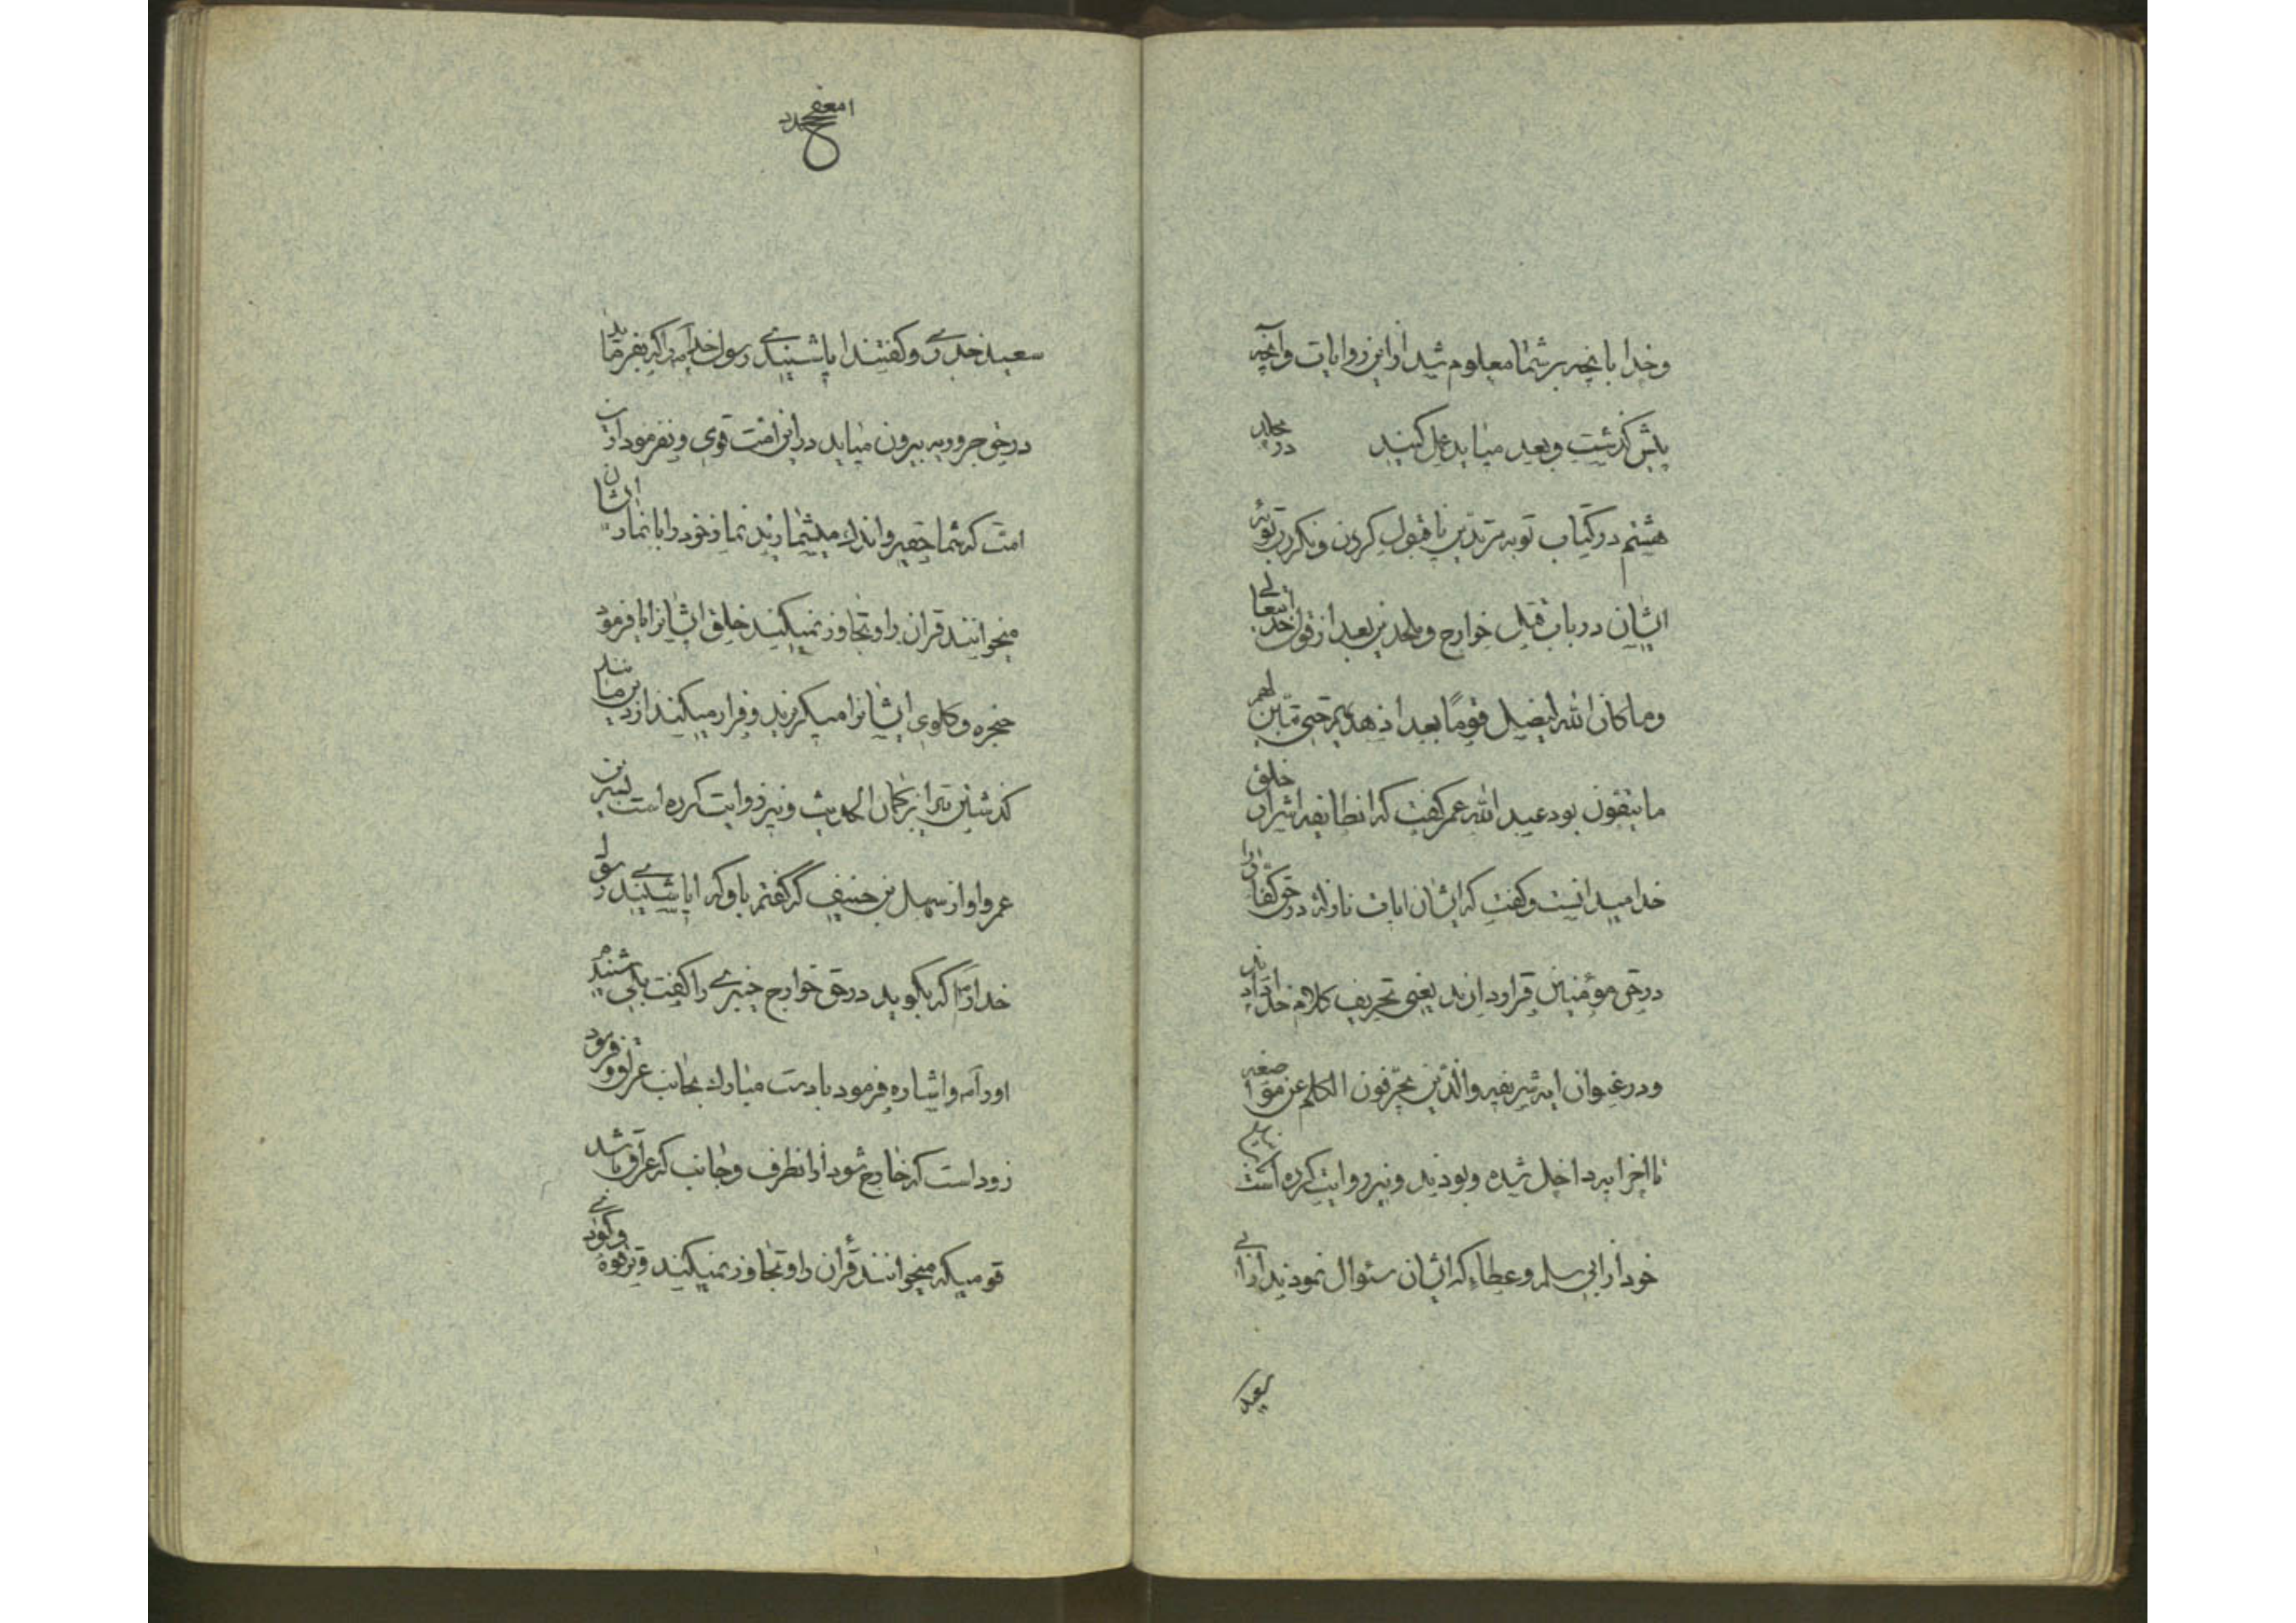 وخدا بانچه بر شما معلوم شد از این روایات وآنچه
پیش گذشت و بعد میاید عمل کنید در جلد
هشتم در کتاب توبه مرتدین با قبول کردن ونکردن توبه
ایشان در باب قتل خوارج وملحدین بعد از قول خدایتعالی
وما کان الله لیضل قومًا بعد اذ هدیهم حتی یبین لهم
ما یتقون بود عبد الله عمر گفت که انطایفه اشرار خلق
خدا میدانست وگفت که ایشان ایات نازله در حق کفار را
در حق مؤمنین قرار دادند یعنی تحریف کلام خدا دادند
ودر عنوان ایه شریفه والذین یحرفون الکلم عن مواضعه
تا اخر ایه داخل شده وبودند ونیز روایت کرده است
خود از ابی سلمه وعطاء که ایشان سئوال نمودند از ابی
سعید
سعید خدری وگفتند ایا شنیدی رسول خدا را که بفرماید
در حق حروریه بیرون میاید در این امت قومی ونفرمود از این
امت که شما حقیر واندك میشمارید نماز خود را با نماز ایشان
میخوانند قران را وتجاوز نمیکند خلق ایشانرا یا فرمود
حنجره وگلوی ایشانرا میگریزند وفرار میکنند از دین مانند
گذشتن تیر از کمان الحدیث ونیز روایت کرده است یسیر بن
عمرو او از سهل بن حنیف که گفتم باو که ایا شنیدی رسول
خدا را که بگوید در حق خوارج خبری را گفت بلی شنیدم
اورا واشاره فرمود با دست مبارك بجانب عراق وفرمود
زود است که خارج شود از انطرف وجانب که عراق باشد
قومیکه میخوانند قرآن را وتجاوز نمیکند